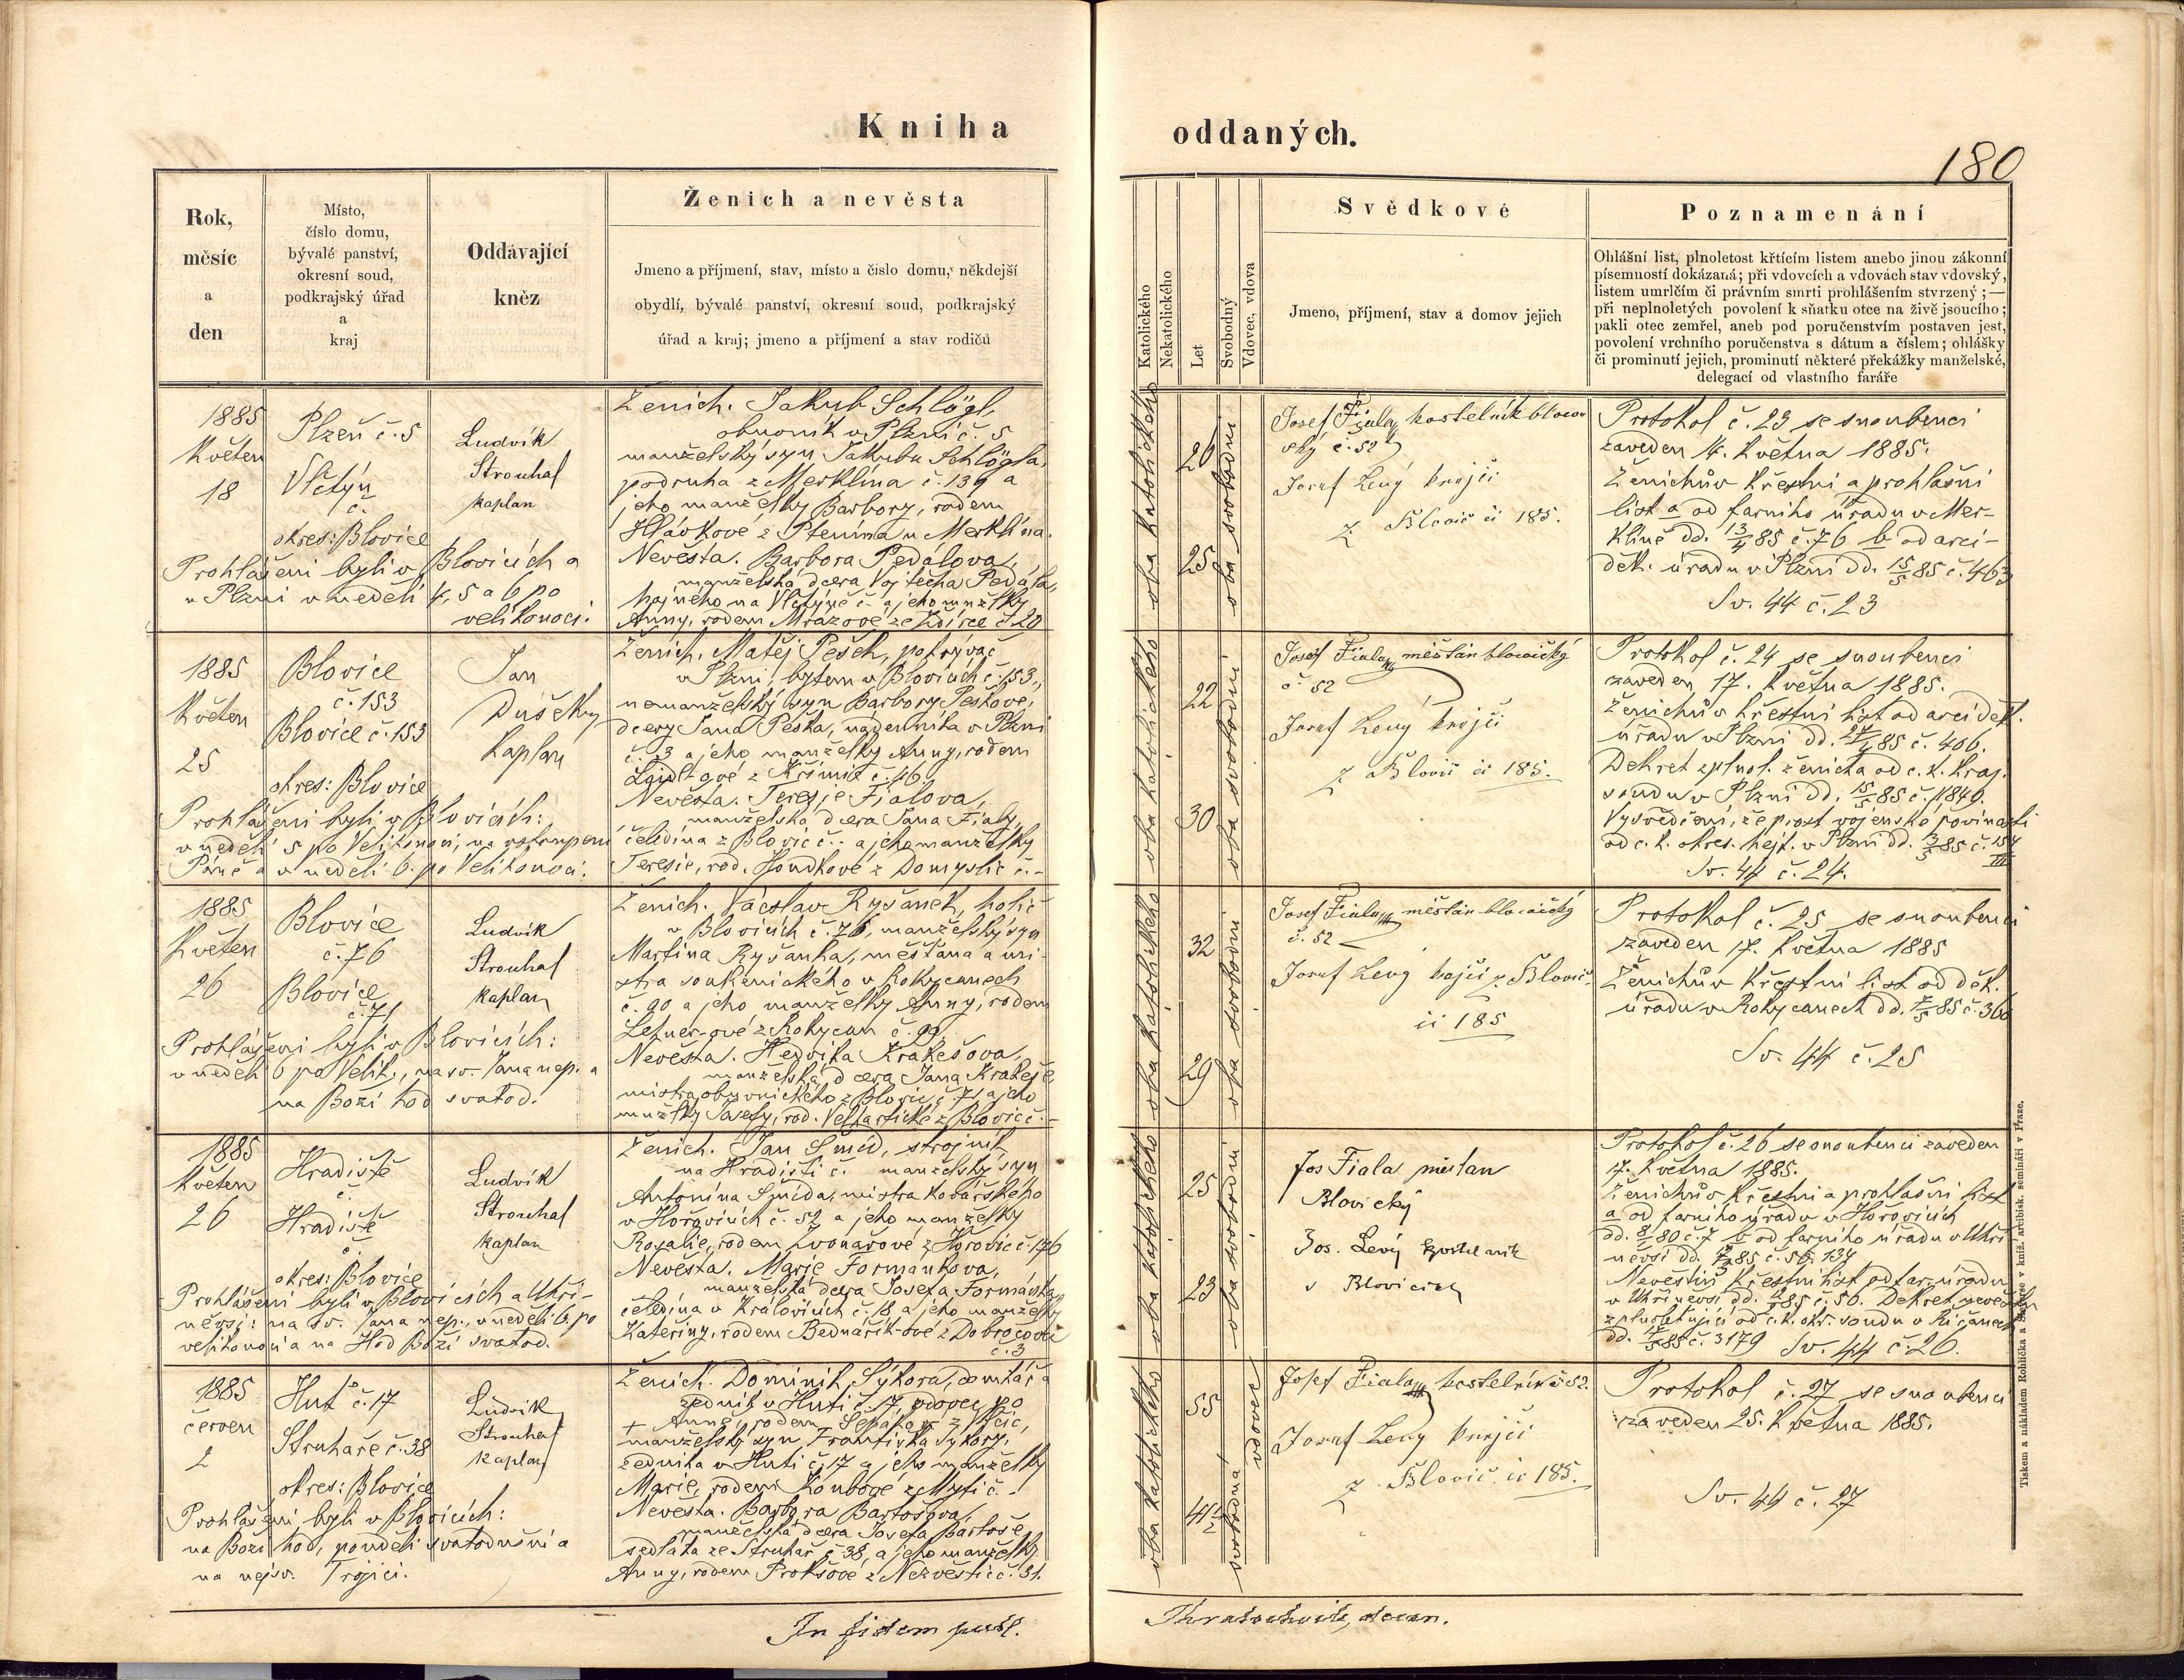 Kniha oddaných.
180
Rok,
měsíc
a
den
Místo,
číslo domu,
bývalé panství,
okresní soud,
podkrajský úřad
a
kraj
Oddávající
kněz
Ženich a nevěsta
Jmeno a příjmení, stav, místo a číslo domu, někdejší
obydlí, bývalé panství, okresní soud, podkrajský
úřad a kraj; jmeno a příjmení a stav rodičů
Katolického
Nekatolického
Let
Svobodný
Vdovec, vdova
Svědkové
Jmeno, příjmení, stav a domov jejich
Poznamenání
Ohlášní list, plnoletost křtícím listem anebo jinou zákonní
písemností dokázaná; při vdovcích a vdovách stav vdovský,
listem umrlčím či právním smrti prohlášením stvrzený; —
při neplnoletých povolení k sňatku otce na živě jsoucího;
pakli otec zemřel, aneb pod poručenstvím postaven jest,
povolení vrchního poručenstva s dátum a číslem; ohlášky
či prominutí jejich, prominutí některé překážky manželské,
delegací od vlastního faráře
1885
Květen
18
Plzeň č. 5
Vlčtýn
č.
okres: Blovice
Ludvík
Strouhal
kaplan
Prohlášeni byli v Blovicích a
v Plzni v neděli 4, 5 a 6 po
velikonoci.
Ženich. Jakub Schlögl,
obuvník v Plzni č. 5
manželský syn Jakuba Schlögla,
podruha z Merklína č. 139 a
jeho manželky Barbory, rodem
Hlávkové z Ptenína u Merklína.
Nevěsta. Barbora Pedálova,
manželská dcera Vojtěcha Pedála,
hajného na Vlčtýně č. a jeho mnželky
Anny, rodem Mrázové ze Zdírce č. 20
oba katolického
26
25
oba svobodni
Josef Fiala kostelník blovic
ský č. 52
Josef Levý krejčí
z Blovic čí 185.
Protokol č. 23 se snoubenci
zaveden 14. Května 1885.
Ženichův křestní a prohlašní
list a od farního úřadu v Mer-
klíně dd. 13/4 85 č. 76 b od arci-
děk. úřadu v Plzni dd. 15/5 85 č. 463
Sv. 44 č. 23
1885
Květen
25
Blovice
č. 153
Blovice č. 153
okres: Blovice
Jan
Dušek
Kaplan
Prohlášeni byli v Blovicích:
v neděli 5 po Velikonoci, na vstoupení
Páně a v neděli 6. po Velikonoci.
Ženich. Matěj Pešek, pokrývač
v Plzni, bytem v Blovicích č. 153,
nemanželský syn Barbory Peškové,
dcery Jana Peška, nádenníka v Plzni
č. 3 a jeho manželky Anny, rodem
z Křimic č. 46.
Nevěsta. Teresie Fialova,
manželská dcera Jana Fialy,
čeledína z Blovic č. - a jeho manželky
Teresie, rod. Houdkové z Domyslic č. -
oba katolického
22
30
oba svobodni
Josef Fiala měšťan blovický
č. 52
Josef Levý krejčí
z Blovic čí 185.
Protokol č. 24 se snoubenci
zaveden 17. května 1885.
Ženichův křestní list od arciděk.
úřadu v Plzni dd. 85 č. 406.
Dekret zplnol. ženicha od c. k. kraj.
soudu v Plzni dd. 15/5 85 č. 1849.
Vysvědčení, že prost vojenské povinnosti
od c. k. okres. hejt. v Plzni dd. 85 č. 154/III
Sv. 44 č. 24.
1885
Květen
26
Blovice
č. 76
Blovice
č. 71
Ludvík
Strouhal
kaplan
Prohlášeni byli v Blovicích:
v neděli 6 po Velik., na sv. Jana nep. a
na Boží hod svatod.
Ženich. Václav Ryšánek, holič
v Blovicích č. 76, manželský syn
Martina Ryšánka, měšťana a mi-
stra soukenického v Rokycanech
č. 90 a jeho manželky Anny, rodem
z Rokycan č. 99.
Nevěsta. Hedvika Krakešova,
manželská dcera Jana Krakeše
mistra obuvnického z Blovic č. 71 a jeho
mnželky Josefy, rod. z Blovic č. -
oba katolického
32
29
oba svobodni
Josef Fiala měšťan blovický
č. 52
Josef Levý krejčí z Blovic
čí 185
Protokol č. 25 se snoubenci
zaveden 17. května 1885
Ženichův křestní list od děk.
úřadu v Rokycanech dd. 85 č. 366
Sv. 44 č. 25
1885
Květen
26
Hradiště
č.
Hradiště
č.
okres: Blovice
Ludvík
Strouhal
kaplan
Prohlášeni byli v Blovicích a Uhří-
něvsi: na sv. Jana nep., v neděli 6. po
velikonoci a na Hod Boží svatod.
Ženich. Jan Šmíd, strojník
na Hradišti č. manželský syn
Antonína Šmída, mistra kovářského
v Hořovicích č. 52 a jeho manželky
Rosalie, rodem Zvonařové z Hořovic č. 176
Nevěsta. Marie Formankova,
manželská dcera Josefa Formánka
čeledína v Královicích č. 18 a jeho manželky
Kateřiny, rodem Bednaříkové z Dobročovic
č. 3
oba katolického
25
23
oba svobodni
Jos Fiala měštan
Blovický
Jos. Levý kostelnik
v Blovicich
Protokol č. 26 se snoubenci zaveden
17. května 1885.
Ženichův křestní a prohlašní list
a od farního úřadu v Hořovicích
dd. 80 č. 7 b od farního úřadu v Uhří-
něvsi dd. 85 č. 56, 134
Nevěstin křestní list od far. úřadu
v Uhříněvsi dd. 85 č. 50. Dekret nevěstu
zplnoletňující od c. k. okr. soudu v Říčanech
dd. 85 č. 3179 Sv. 44 č. 26.
1885
červen
2
Huť č. 17
Struhaře č. 38
okres: Blovice
Ludvík
Strouhal
kaplan
Prohlášeni byli v Blovicích:
na Boží hod, pondělí svatodušní a
na nejsv. Trojici.
Ženich. Dominik Sýkora, domkář a
zedník v Huti č. 17, vdovec po
+ Anně, rodem
manželský syn Františka Sýkory,
zedníka v Huti č. 17 a jeho manželky
Marie, rodem Koubové z Mytí č. -
Nevěsta. Barbora Bartošova,
manželská dcera Josefa Bartoše,
sedláka ze Struhař č. 38, a jeho manželky
Anny, rodem Prokšové z Nezvěstic č. 31.
oba katolického
55
41 1/2
svobodná
vdovec
Josef Fiala kostelník č 52.
Josef Levý krejčí
z Blovic čí 185.
Protokol č. 27 se snoubenci
zaveden 25. Května 1885.
Sv. 44 č. 27
In fidem publ.
decan.
Tiskem a nákladem Rohlíčka a Sieverse v kníž. arcibisk. semináři v Praze.